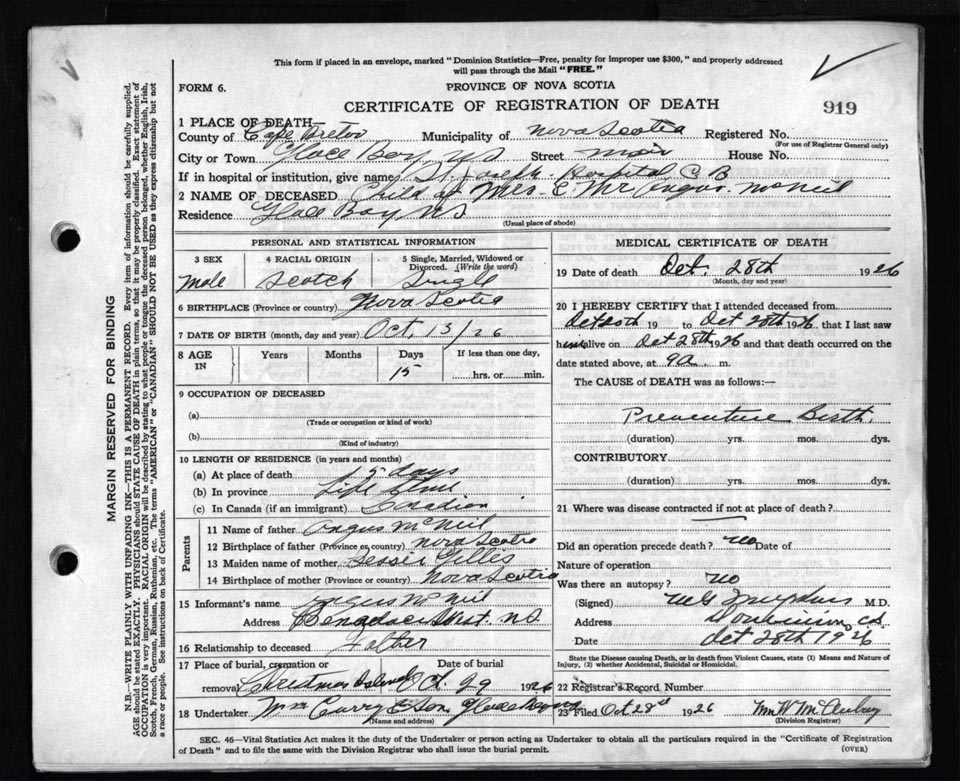 This form if placed in an envelope, marked "Dominion Statistics—Free, penalty for improper use $300," and properly addressed
will pass through the Mail "FREE."
FORM 6.
PROVINCE OF NOVA SCOTIA
CERTIFICATE OF REGISTRATION OF DEATH
919
1 PLACE OF DEATH—
County of Cape Breton Municipality of Nova Scotia Registered No.
(For use of Registrar General only)
City or Town Glace Bay, N S Street Main House No.
If in hospital or institution, give name St. Joseph Hospital C B
2 NAME OF DECEASED Child of Mrs. & Mr Angus McNeil
Residence Glace Bay N S
(Usual place of abode)
PERSONAL AND STATISTICAL INFORMATION
3 SEX 4 RACIAL ORIGIN 5 Single, Married, Widowed or
Divorced. (Write the word)
Male Scotch Single
6 BIRTHPLACE (Province or country) Nova Scotia
7 DATE OF BIRTH (month, day and year) Oct. 13/26
8 AGE IN Years Months Days If less than one day,
15 hrs. or min.
9 OCCUPATION OF DECEASED
(a)
(Trade or occupation or kind of work)
(b)
(Kind of industry)
10 LENGTH OF RESIDENCE (in years and months)
(a) At place of death 15 days
(b) In province Life time
(c) In Canada (if an immigrant) Canadian
Parents
11 Name of father Angus McNeil
12 Birthplace of father (Province or country) Nova Scotia
13 Maiden name of mother Bessie Gillis
14 Birthplace of mother (Province or country) Nova Scotia
15 Informant's name Angus McNeil
Address Benacadie West. N S
16 Relationship to deceased Father
17 Place of burial, cremation or Date of burial
removal Christmas Island Oct. 29 1926
18 Undertaker Wm Curry & Son, Glace Bay
(Name and address)
MEDICAL CERTIFICATE OF DEATH
19 Date of death Oct. 28th 1926
(Month, day and year)
20 I HEREBY CERTIFY that I attended deceased from
19 to Oct 28th 1926, that I last saw
him alive on Oct 28th 1926 and that death occurred on the
date stated above, at 9 a. m.
The CAUSE OF DEATH was as follows:—
Premature Birth.
(duration) yrs. mos. dys.
CONTRIBUTORY
(duration) yrs. mos. dys.
21 Where was disease contracted if not at place of death?
Did an operation precede death? No Date of
Nature of operation
Was there an autopsy? No
(Signed) M.D.
Address
Date Oct 28th 1926
State the Disease causing Death, or in death from Violent Causes, state (1) Means and Nature of
Injury, (2) whether Accidental, Suicidal or Homicidal.
22 Registrar's Record Number
23 Filed Oct 28st 1926
(Division Registrar)
SEC. 46—Vital Statistics Act makes it the duty of the Undertaker or person acting as Undertaker to obtain all the particulars required in the "Certificate of Registration
of Death" and to file the same with the Division Registrar who shall issue the burial permit.
(OVER)
MARGIN RESERVED FOR BINDING
N.B.—WRITE PLAINLY WITH UNFADING INK—THIS IS A PERMANENT RECORD. Every item of information should be carefully supplied.
AGE should be stated EXACTLY. PHYSICIANS should STATE CAUSE OF DEATH in plain terms, so that it may be properly classified. Exact statement of
OCCUPATION is very important. RACIAL ORIGIN will be described by stating to what people or tongue the deceased person belonged, whether English, Irish,
Scotch, French, German, Russian, Ruthenian, etc. The terms "AMERICAN" or "CANADIAN" SHOULD NOT BE USED as they express citizenship but not
a race or people. See instructions on back of Certificate.